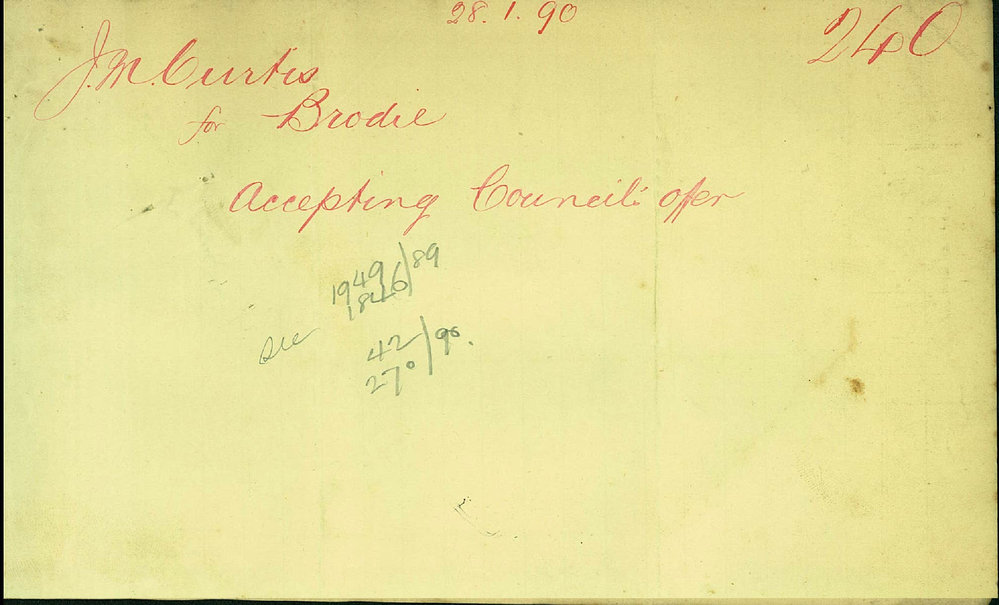 28.1.90
240
J.M. Curtis
for Brodie
Accepting Council's offer
1949/89
1846
see
42/90.
270